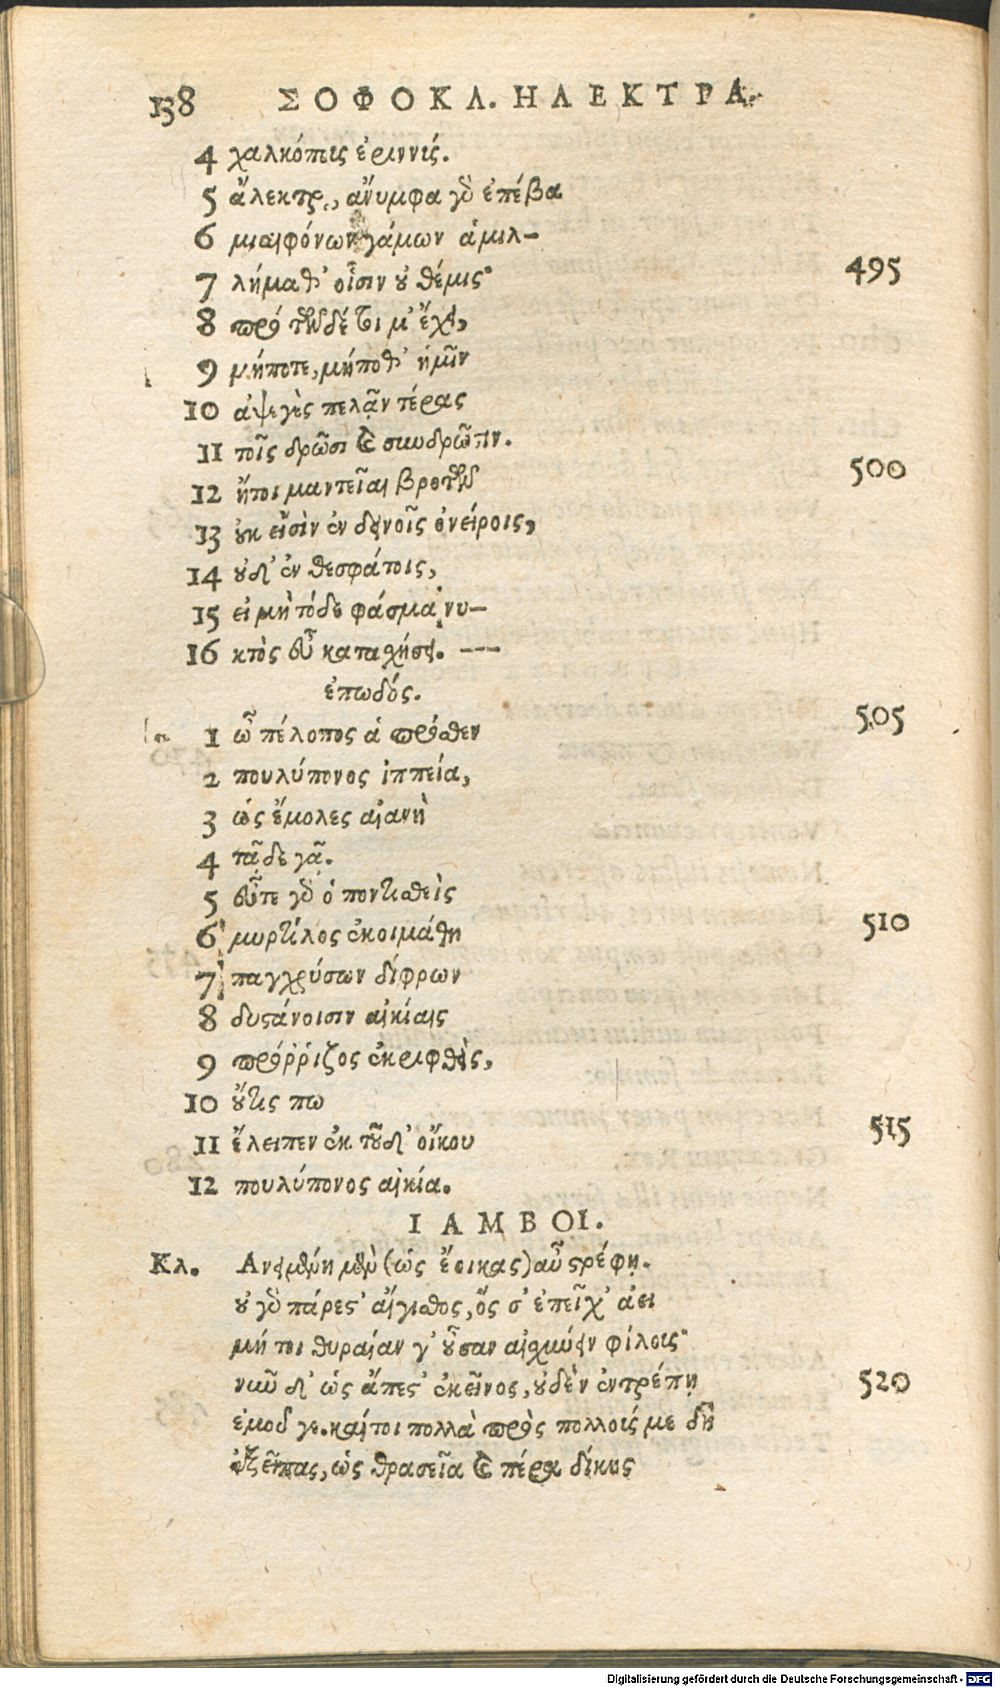 138 ΣΟΦΟΚΛ. ΗΛΕΚΤΡΑ.
4 χαλκόπους ἐριννύς.
5 ἄλεκτρ', ἄνυμφα γὸ ἐπέβα
6 μιαιφόνων γάμων ἁμιλ-
7 λήμαθ' οἷσιν οὐ θέμις· 495
8 πρό τῶνδέ τι μ' ἔχει,
9 μήποτε, μήποθ' ἡμῖν
10 ἀψεγὲς πελᾷν τέρας
11 τοῖς δρῶσι καὶ συνδρῶσιν.
12 ἤτοι μαντεῖαι βροτῶν 500
13 οὐκ εἰσὶν ἐν δεινοῖς ὀνείροις,
14 οὐδ' ἐν θεσφάτοις,
15 εἰ μὴ τόδε φάσμα νυ-
16 κτὸς εὖ κατασχήσει. ---
ἐπωδός.
1 ὦ πέλοπος ἁ πρόσθεν 505
2 πουλύπονος ἱππεία,
3 ὡς ἔμολες αἰανὴ
4 τᾷδε γᾷ.
5 εὖτε γὸ ὁ ποντισθεὶς
6 μυρτίλος ἐκοιμάθη 510
7 παγχρύσων δίφρων
8 δυστάνοισιν αἰκίαις
9 πρόῤῥιζος ἐκριφθεὶς,
10 οὔτις πω
11 ἔλειπεν ἐκ τοῦδ' οἴκου 515
12 πουλύπονος αἰκία.
ΙΑΜΒΟΙ.
Κλ. Ανειμένη μὲν (ὡς ἔοικας) αὖ στρέφῃ.
οὐ γὸ πάρεστ' αἴγισθος, ὅς σ' ἐπεῖχ' ἀεὶ
μή τοι θυραίαν γ' οὖσαν αἰσχύνειν φίλους·
νῦν δ' ὡς ἄπεστ' ἐκεῖνος, οὐδὲν ἐντρέπῃ 520
ἐμοῦ γε. καίτοι πολλὰ πρὸς πολλούς με δὴ
ἐξεῖπας, ὡς θρασεῖα καὶ πέρα δίκης
Digitalisierung gefördert durch die Deutsche Forschungsgemeinschaft - DFG